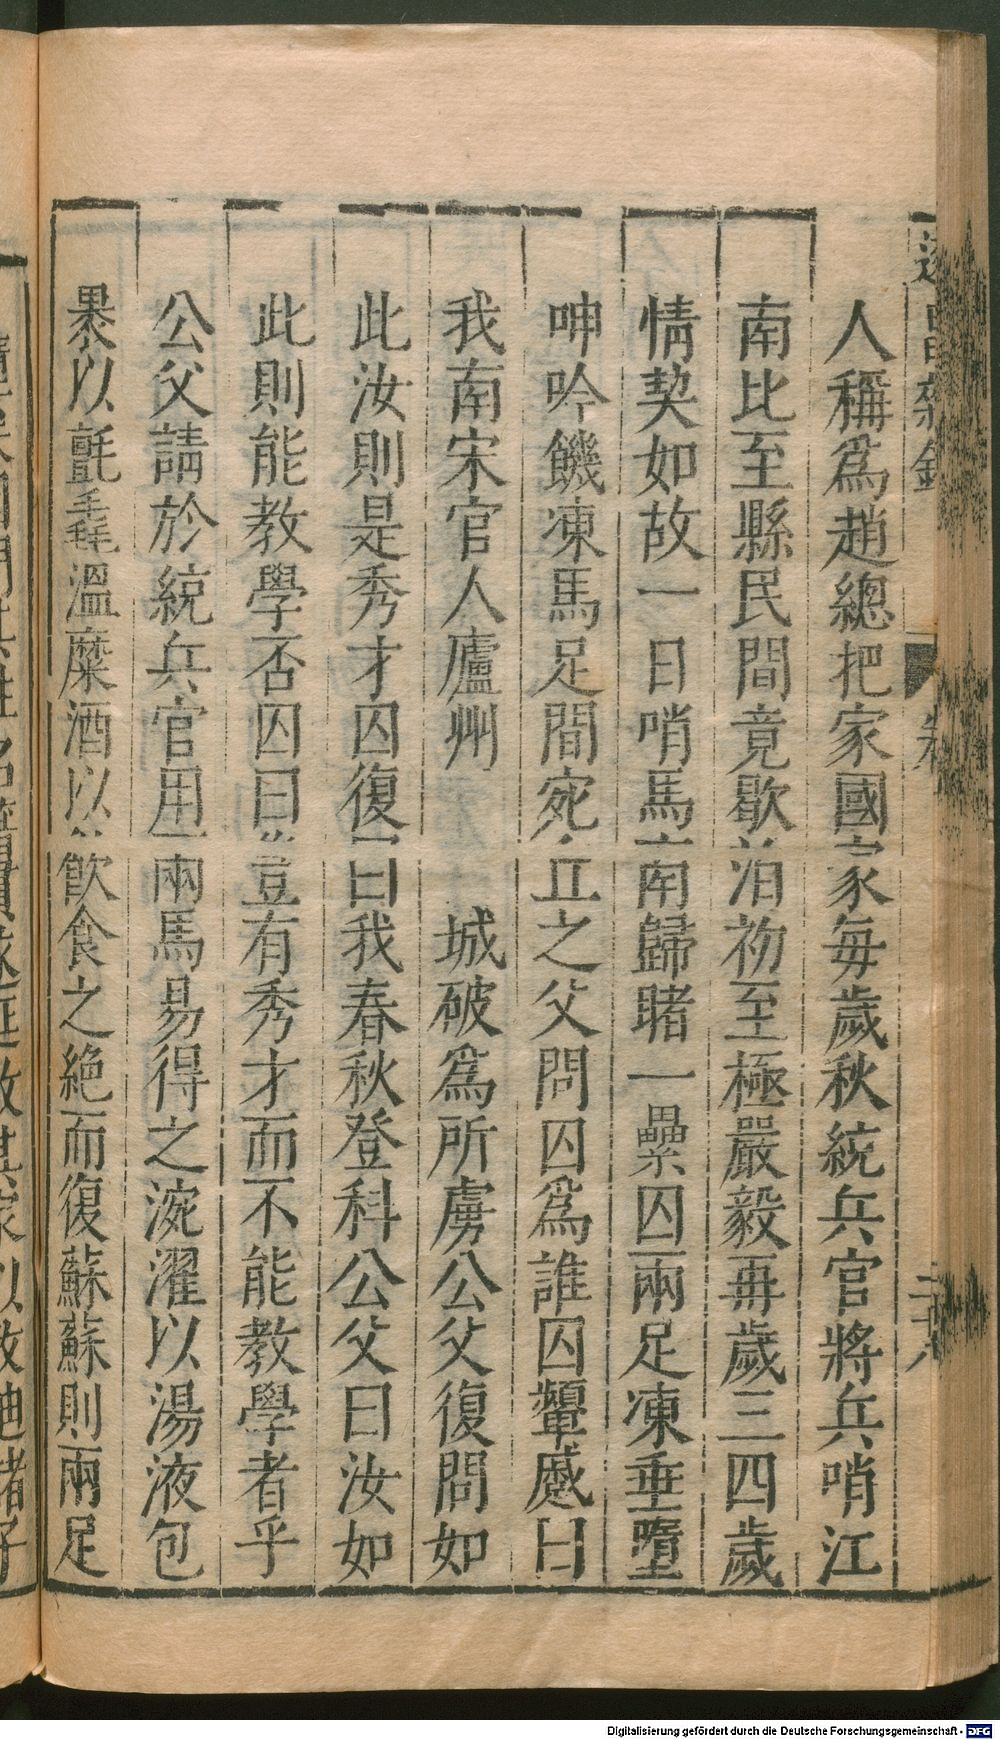 人稱爲趙總把家國家每歲秋統兵官將兵哨江
南比至縣民間竟歇泊初至極嚴毅再歲三四歲
情契如故一日哨馬南歸睹一纍囚兩足凍垂墮
呻吟饑凍馬足間宛丘之父問囚爲誰囚顰蹙曰
我南宋官人廬州 城破爲所虜公父復問如
此汝則是秀才囚復曰我春秋登科公父曰汝如
此則能教學否囚曰豈有秀才而不能教學者乎
公父請於統兵官用兩馬易得之涴濯以湯液包
以氈毳溫糜酒以飲食之絶而復蘇蘇則兩足
Digitalisierung gefördert durch die Deutsche Forschungsgemeinschaft - DFG